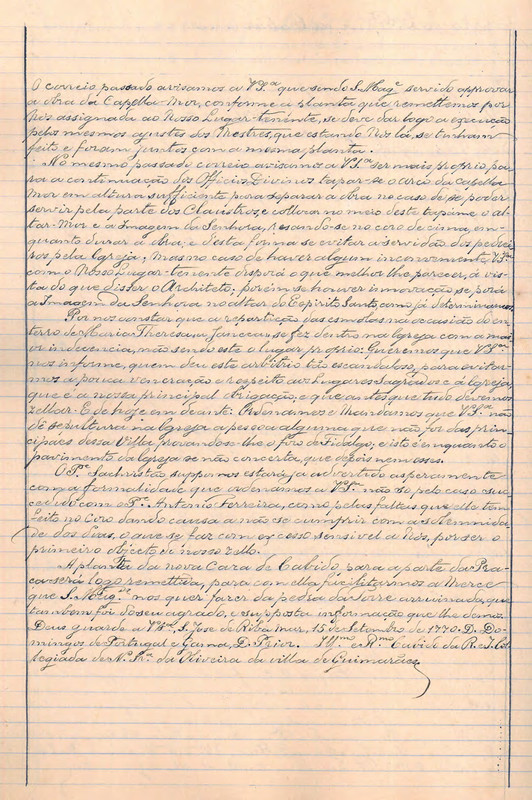 O correio passado avisamos a VSª que sendo S. Magᵉ servido approvar
a obra da Capella-Mor, conforme a planta que remettemos por
Nós assignada ao Nosso Lugar-tenente, se deve dar logo a execução
pelos mesmos ajustes dos Mestres, que estando Nós lá, se tinham
feito e foram juntos com a mesma planta.
No mesmo passado correio avisamos a VSª ser mais proprio pa-
ra a continuação dos Officios Divinos tapar-se o arco da Capella
Mor em altura sufficiente para separar a obra no caso de se poder
servir pela parte dos Claustros, e collocar no meio deste tapume o al-
tar-Mor e a Imagem da Senhora, resando-se no coro de cima, em-
quanto durar a obra; e desta forma se evitar a servidão dos pedrei-
ros pela Igreja; Mas no caso de haver algum inconveniente, VSª
com o Nosso Lugar-tenente disporá o que melhor lhe parecer, á vis-
ta do que disser o Architeto; porém se houver innovação se porá
a Imagem da Senhora no altar do Espirito Santo, como já determinamos.
Por nos constar que a repartição das esmolas na occasião do en-
terro de Maria Thereza, a fez dentro na Igreja com a mai-
or indecencia, não sendo este o lugar proprio: Queremos que VSª
nos informe, quem deu este arbitrio tão escandaloso, para evitar-
mos a pouca veneração e respeito aos Lugares Sagrados e á Igreja,
que é a nossa principal obrigação, e que antes que tudo devemos
zellar. E de hoje em deante: Ordenamos e Mandamos que VSª não
dê sepultura na Igreja a pessoa alguma que não for das prin-
cipaes dessa Villa, gosando-se-lhe o foro de Fidalgo; e isto é emquanto o
pavimento da Igreja se não concerta, que depois nem esses.
O Pᵉ Sachristão suppomos estará já advertido asperamente
com a formalidade que ordenamos a VSª não só pelo caso suc-
cedido com o Pᵉ Antonio Ferreira, como pelas faltas que elle tem
feito no Coro dando causa a não se cumprir com a solemnida-
de dos dias, o que se faz com excesso sensivel a Nós, por ser o
primeiro objecto do nosso zello.
A planta da nova Casa de Cabido, para a parte da Pra-
ça será logo remettida, para com ella facilitarmos a Mercê
que S. Magᵉ nos quer fazer da pedra da Torre arruinada, que
tambem foi do seu agrado, e supposta informação que lhe damos
Deus guarde a VSª S. José de Riba mar, 15 de Setembro de 1770. D. Do-
mingos de Portugal e Gama, D. Prior. Illᵐᵒ e Rᵐᵒ Cabido da R. I. Col-
legiada de N. Srª da Oliveira da villa de Guimarães